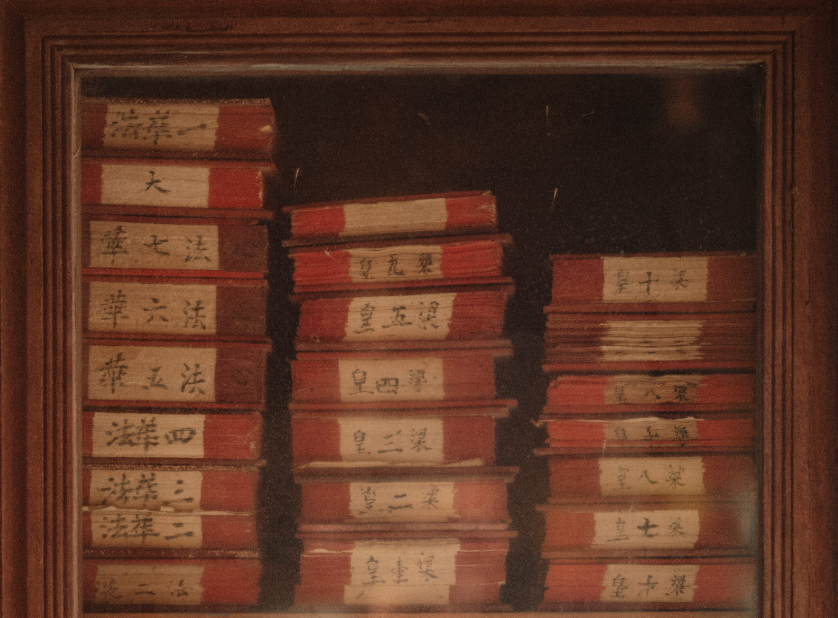 法華一
大
華七法
華六法
華五法
法華四
法華三
法華二
二法
皇九梁
皇五梁
皇四梁
皇三梁
皇二梁
皇壹梁
皇十梁
皇八梁
皇七梁
皇八梁
皇七梁
皇十梁